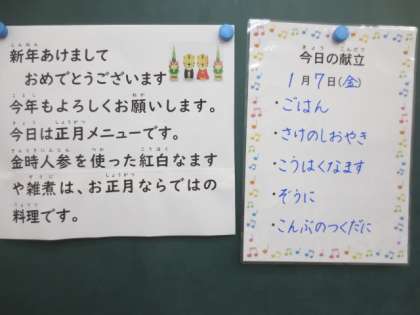 新年あけまして
おめでとうございます
今年もよろしくお願いします。
今日は正月メニューです。
金時人参を使った紅白なます
や雑煮は、お正月ならではの
料理です。
今日の献立
1月7日(金)
・ごはん
・さけのしおやき
・こうはくなます
・ぞうに
・こんぶのつくだに